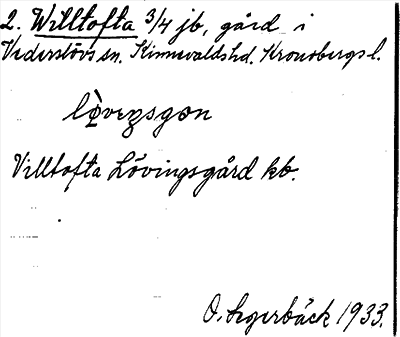 2. Willtofta 3/4 jb, gård i
Vederslövs sn. Kinnevalds hd. Kronobergs l.
Villtofta Lövingsgård kb.
O. Segerbäck 1933.